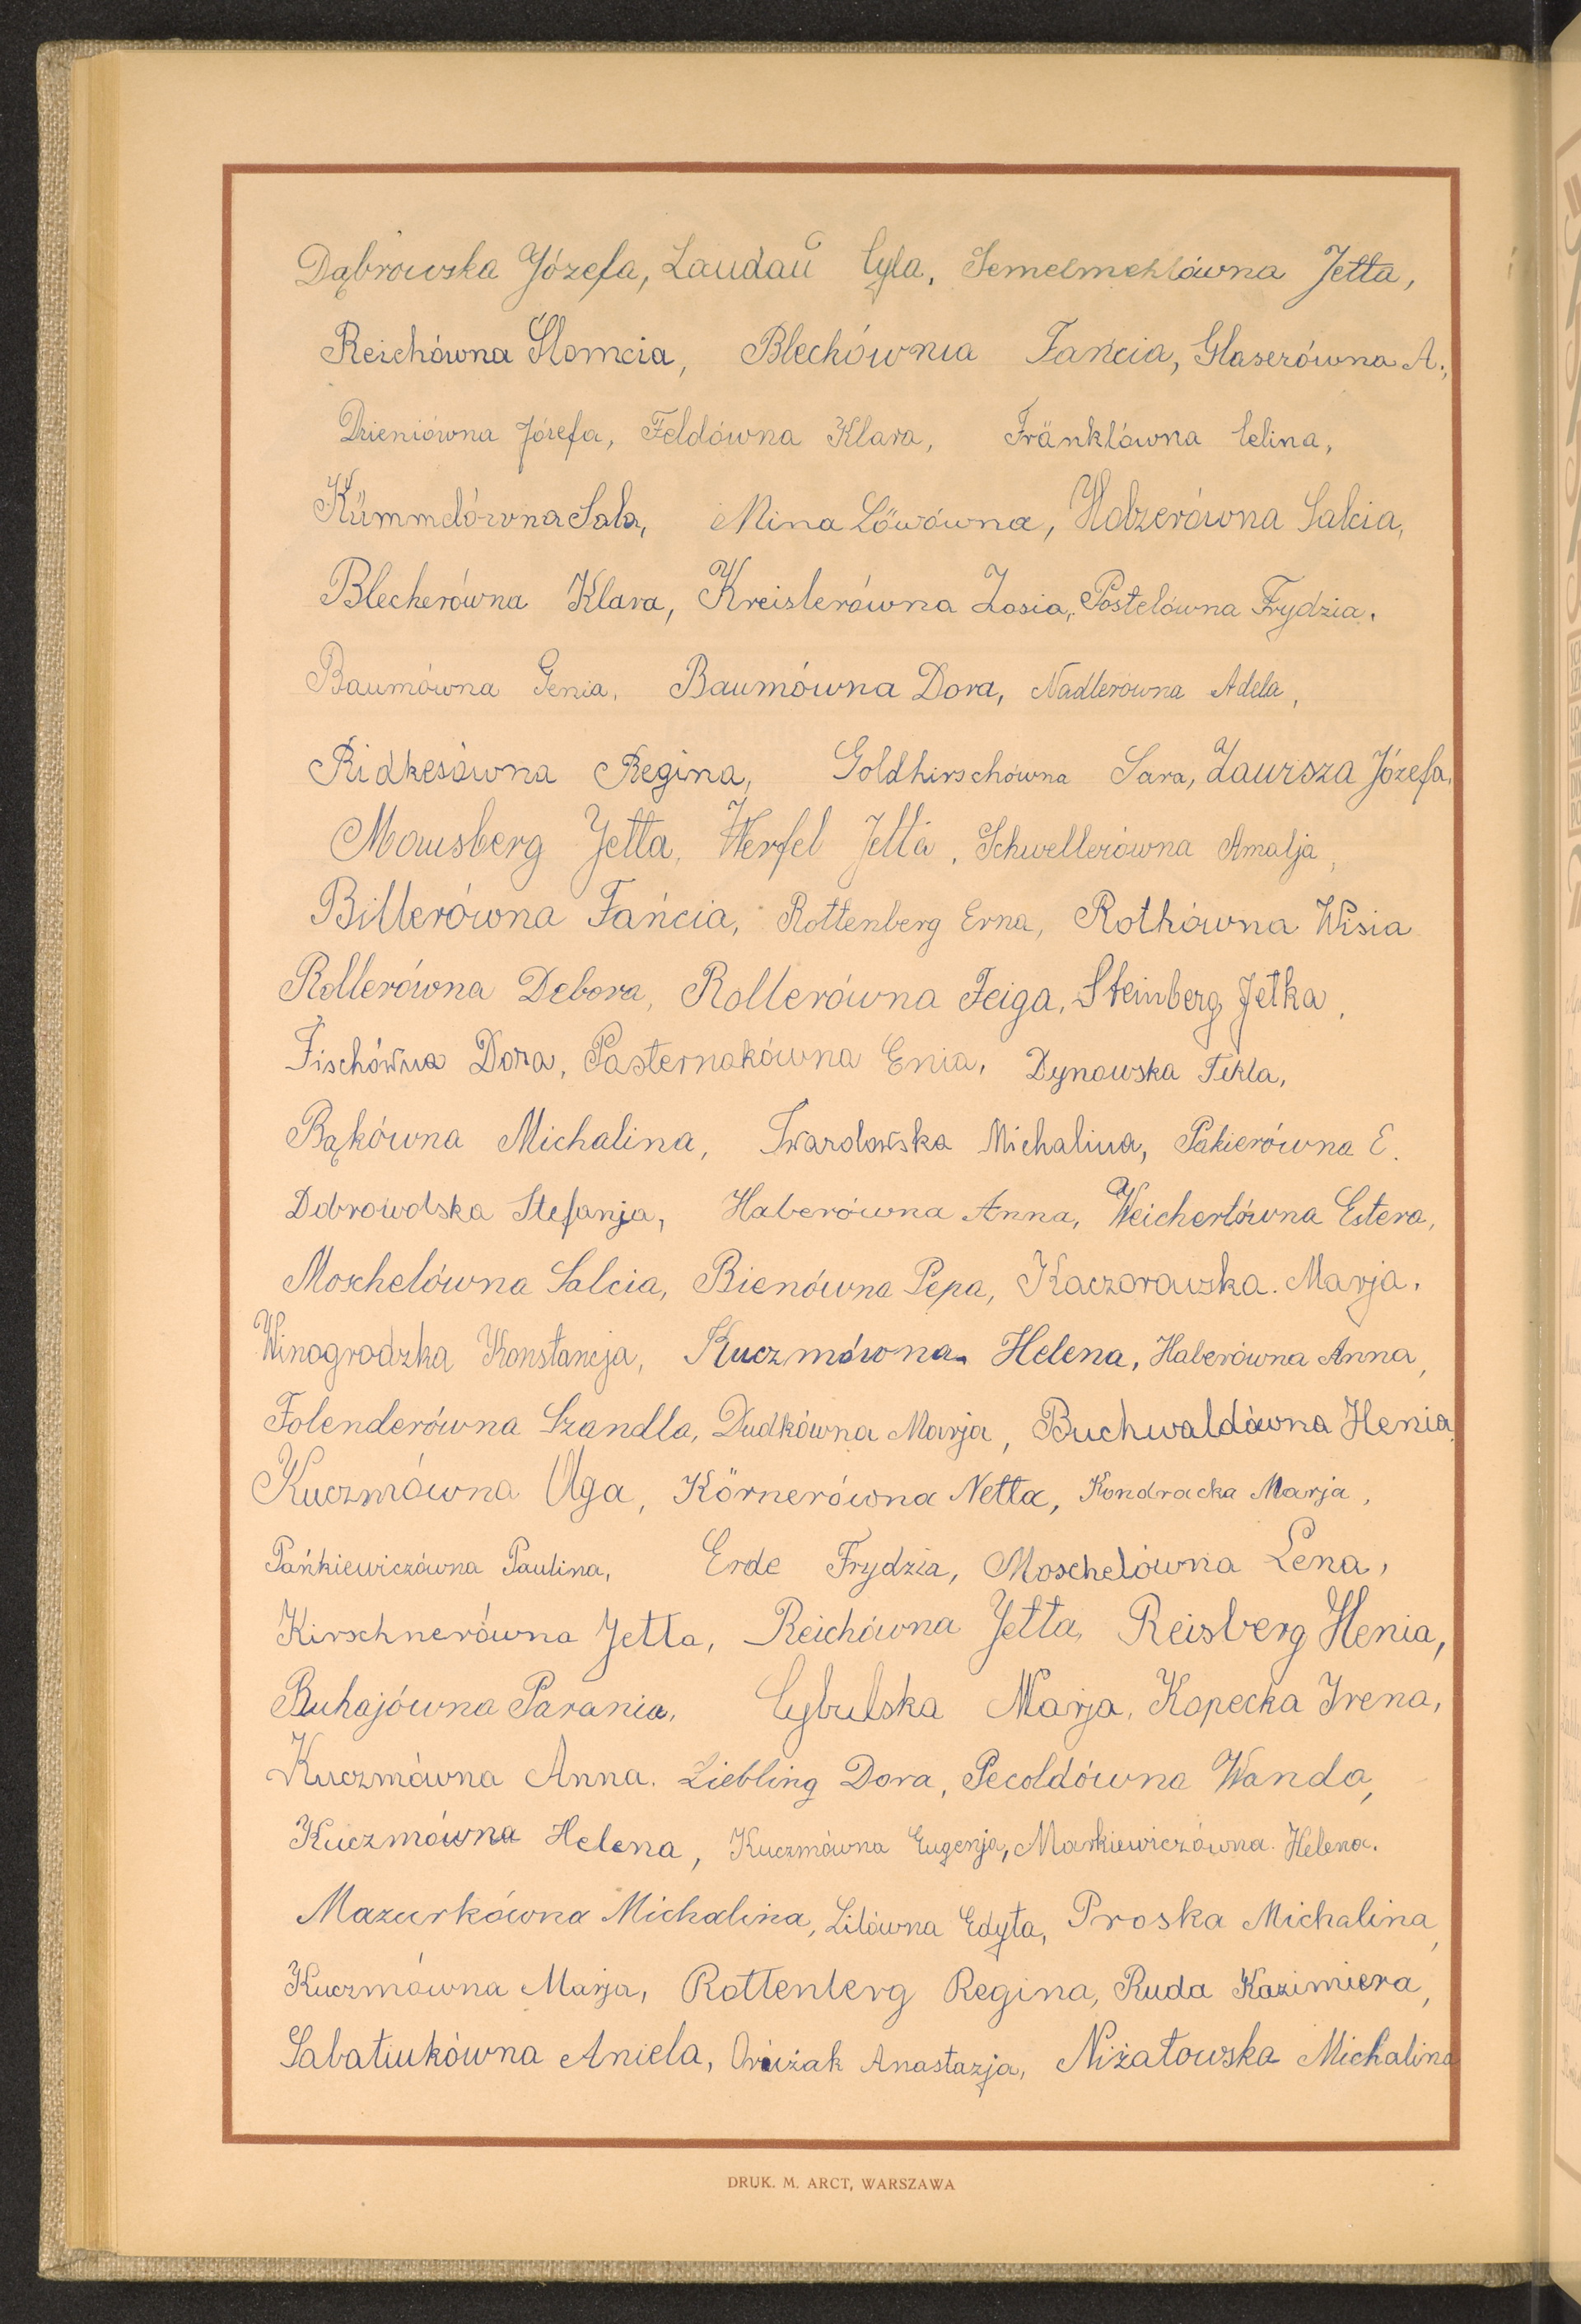 Dąbrowska Józefa, Laudau Cyla, Semelmehlówna Jetta,
Reichówna Słomcia, Blechówna Fańcia, Glaserówna A.,
Dzieniówna Józefa, Feldówna Klara, Fränklówna Celina,
Kümmelówna Sala, Mina Löwówna, Holzerówna Salcia,
Blecherówna Klara, Kreislerówna Zosia, Postelówna Frydzia.
Baumówna Genia, Baumówna Dora, Nadlerówna Adela,
Ridkesówna Regina, Goldhirschówna Sara, Zawisza Józefa,
Mausberg Jetta, Werfel Jetta, Schwellerówna Amalja,
Billerówna Fańcia, Rottenberg Erna, Rothówna Wisia
Rollerówna Debora, Rollerówna Feiga, Steinberg Jetka,
Fischówna Dora, Pasternakówna Enia, Dynowska Tekla,
Bąkówna Michalina, Twardowska Michalina, Pakierówna E.
Dobrowolska Stefanja, Haberówna Anna, Weichertówna Estera,
Moschelówna Salcia, Bienówna Pepa, Kaczorowska. Marja.
Winogrodzka Konstancja, Kuczmówna Helena, Haberówna Anna,
Folenderówna Szandla, Dudkówna Marja, Buchwaldówna Henia
Kuczmówna Olga, Körnerówna Netta, Kondracka Marja,
Pańkiewiczówna Paulina, Erde Frydzia, Moschelówna Lena,
Kirschnerówna Jetta, Reichówna Jetta, Reisberg Henia,
Buhajówna Parania, Cybulska Marja, Kopecka Irena,
Kuczmówna Anna. Liebling Dora, Pecoldówna Wanda,
Kuczmówna Helena, Kuczmówna Eugenja, Markiewiczówna. Helena.
Mazurkówna Michalina, Lilówna Edyta, Proska Michalina,
Kuczmówna Marja, Rottenberg Regina, Ruda Kazimiera,
Sabatiukówna Aniela, Anastazja, Niżatowska Michalina
DRUK. M. ARCT, WARSZAWA